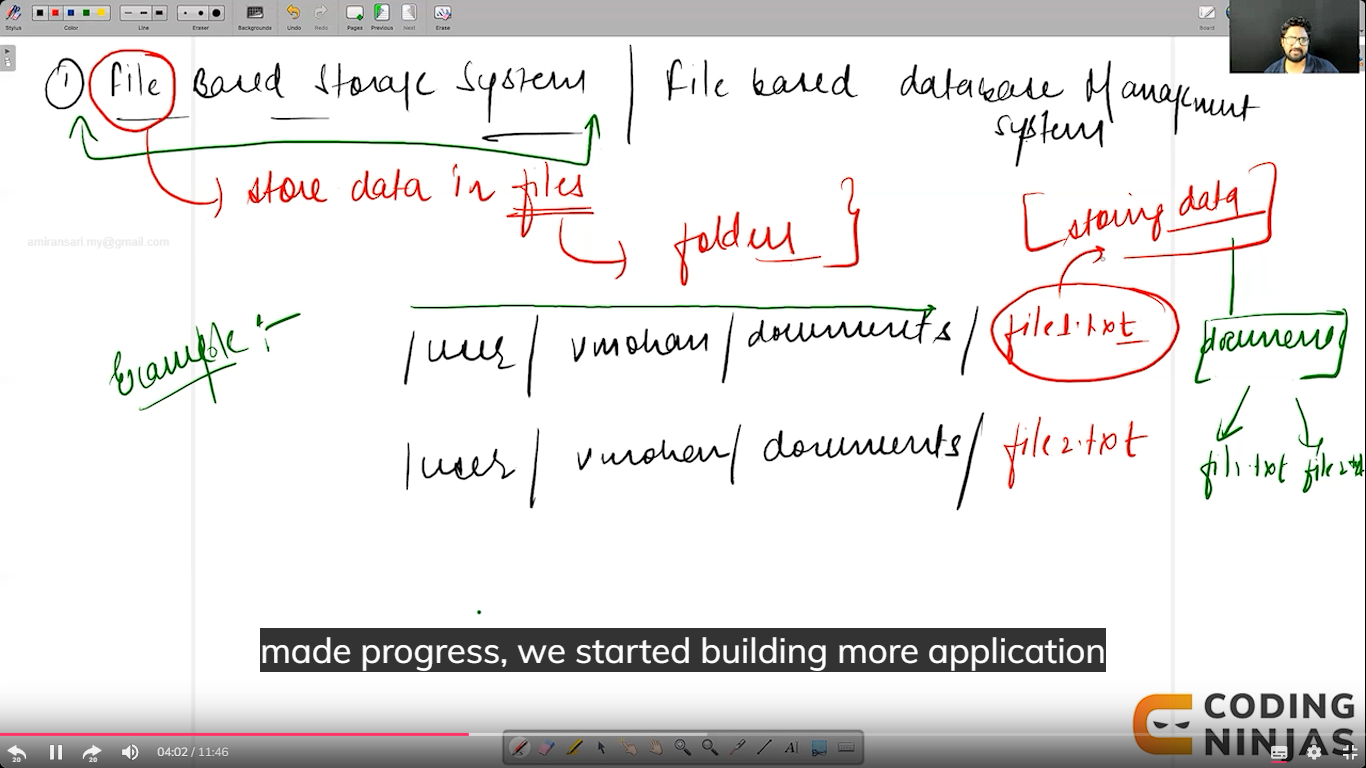 Stylus Color Line Eraser Backgrounds Undo Redo Pages Previous Next Erase Board
① File Based Storage System | File based database Management
system
→ store data in files
→ folders }
[storing data]
amiransari.my@gmail.com
Example :-
/user/vmohan/documents/file1.txt
[documents]
/user/vmohan/documents/file2.txt
fil1.txt file2.txt
made progress, we started building more application
CODING
NINJAS
20 20 04:02 / 11:46